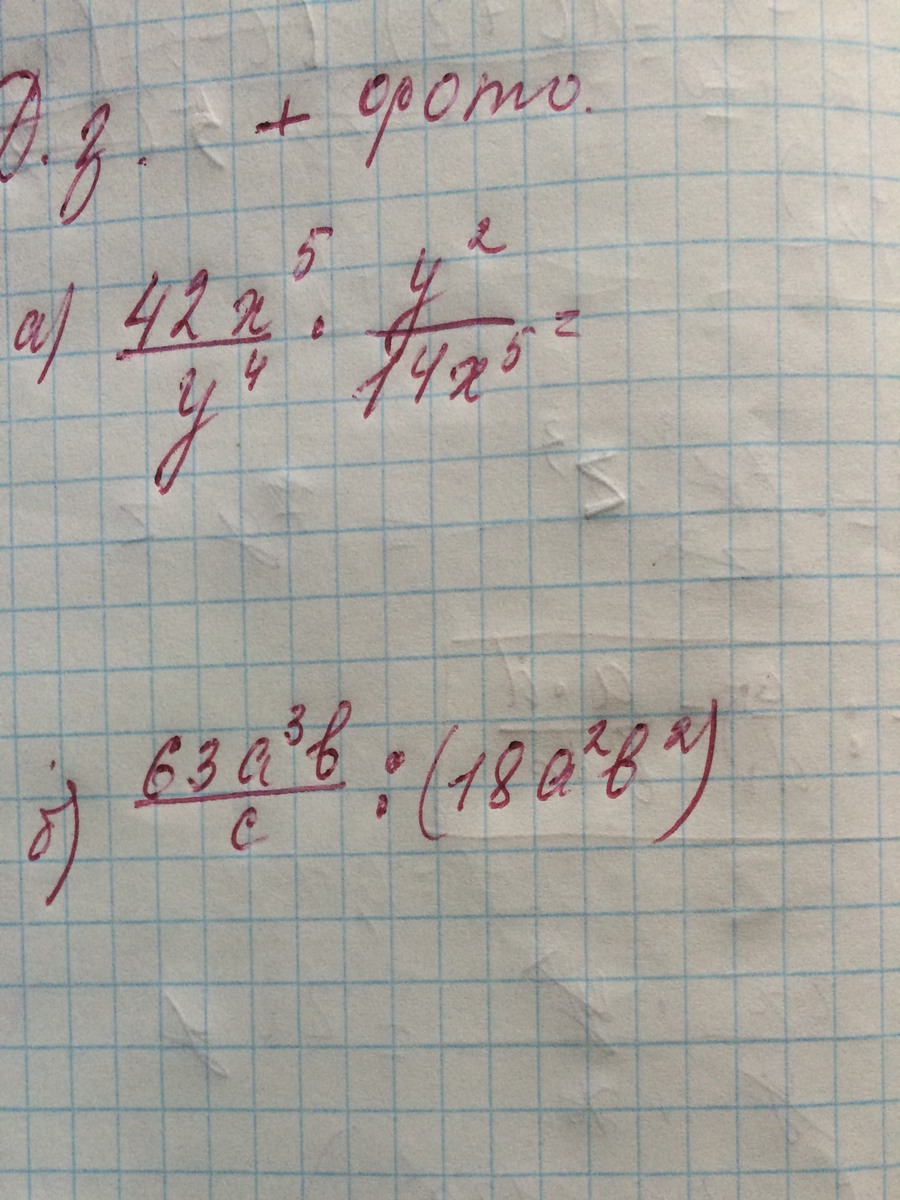 Д.з. + фото.
а) 42x⁵/y⁴ · y²/14x⁵ =
б) 63a³b/c : (18a²b²)